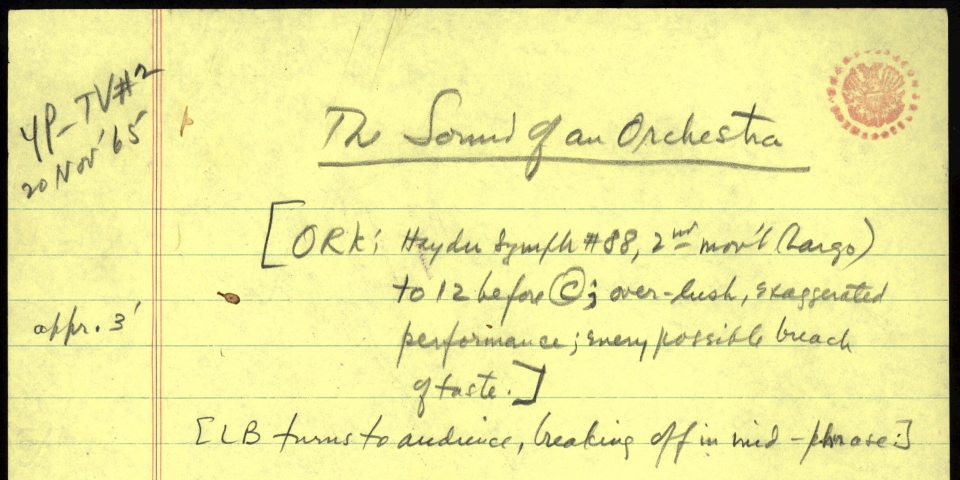 YP-TV#2
20 Nov '65
The Sound of an Orchestra
[ORK: Haydn Symph #88, 2nd mov't (Largo)
to 12 before ©; over-lush, exaggerated
appr. 3'
performance; every possible breach
of taste.]
[LB turns to audience, breaking off in mid-phrase:]